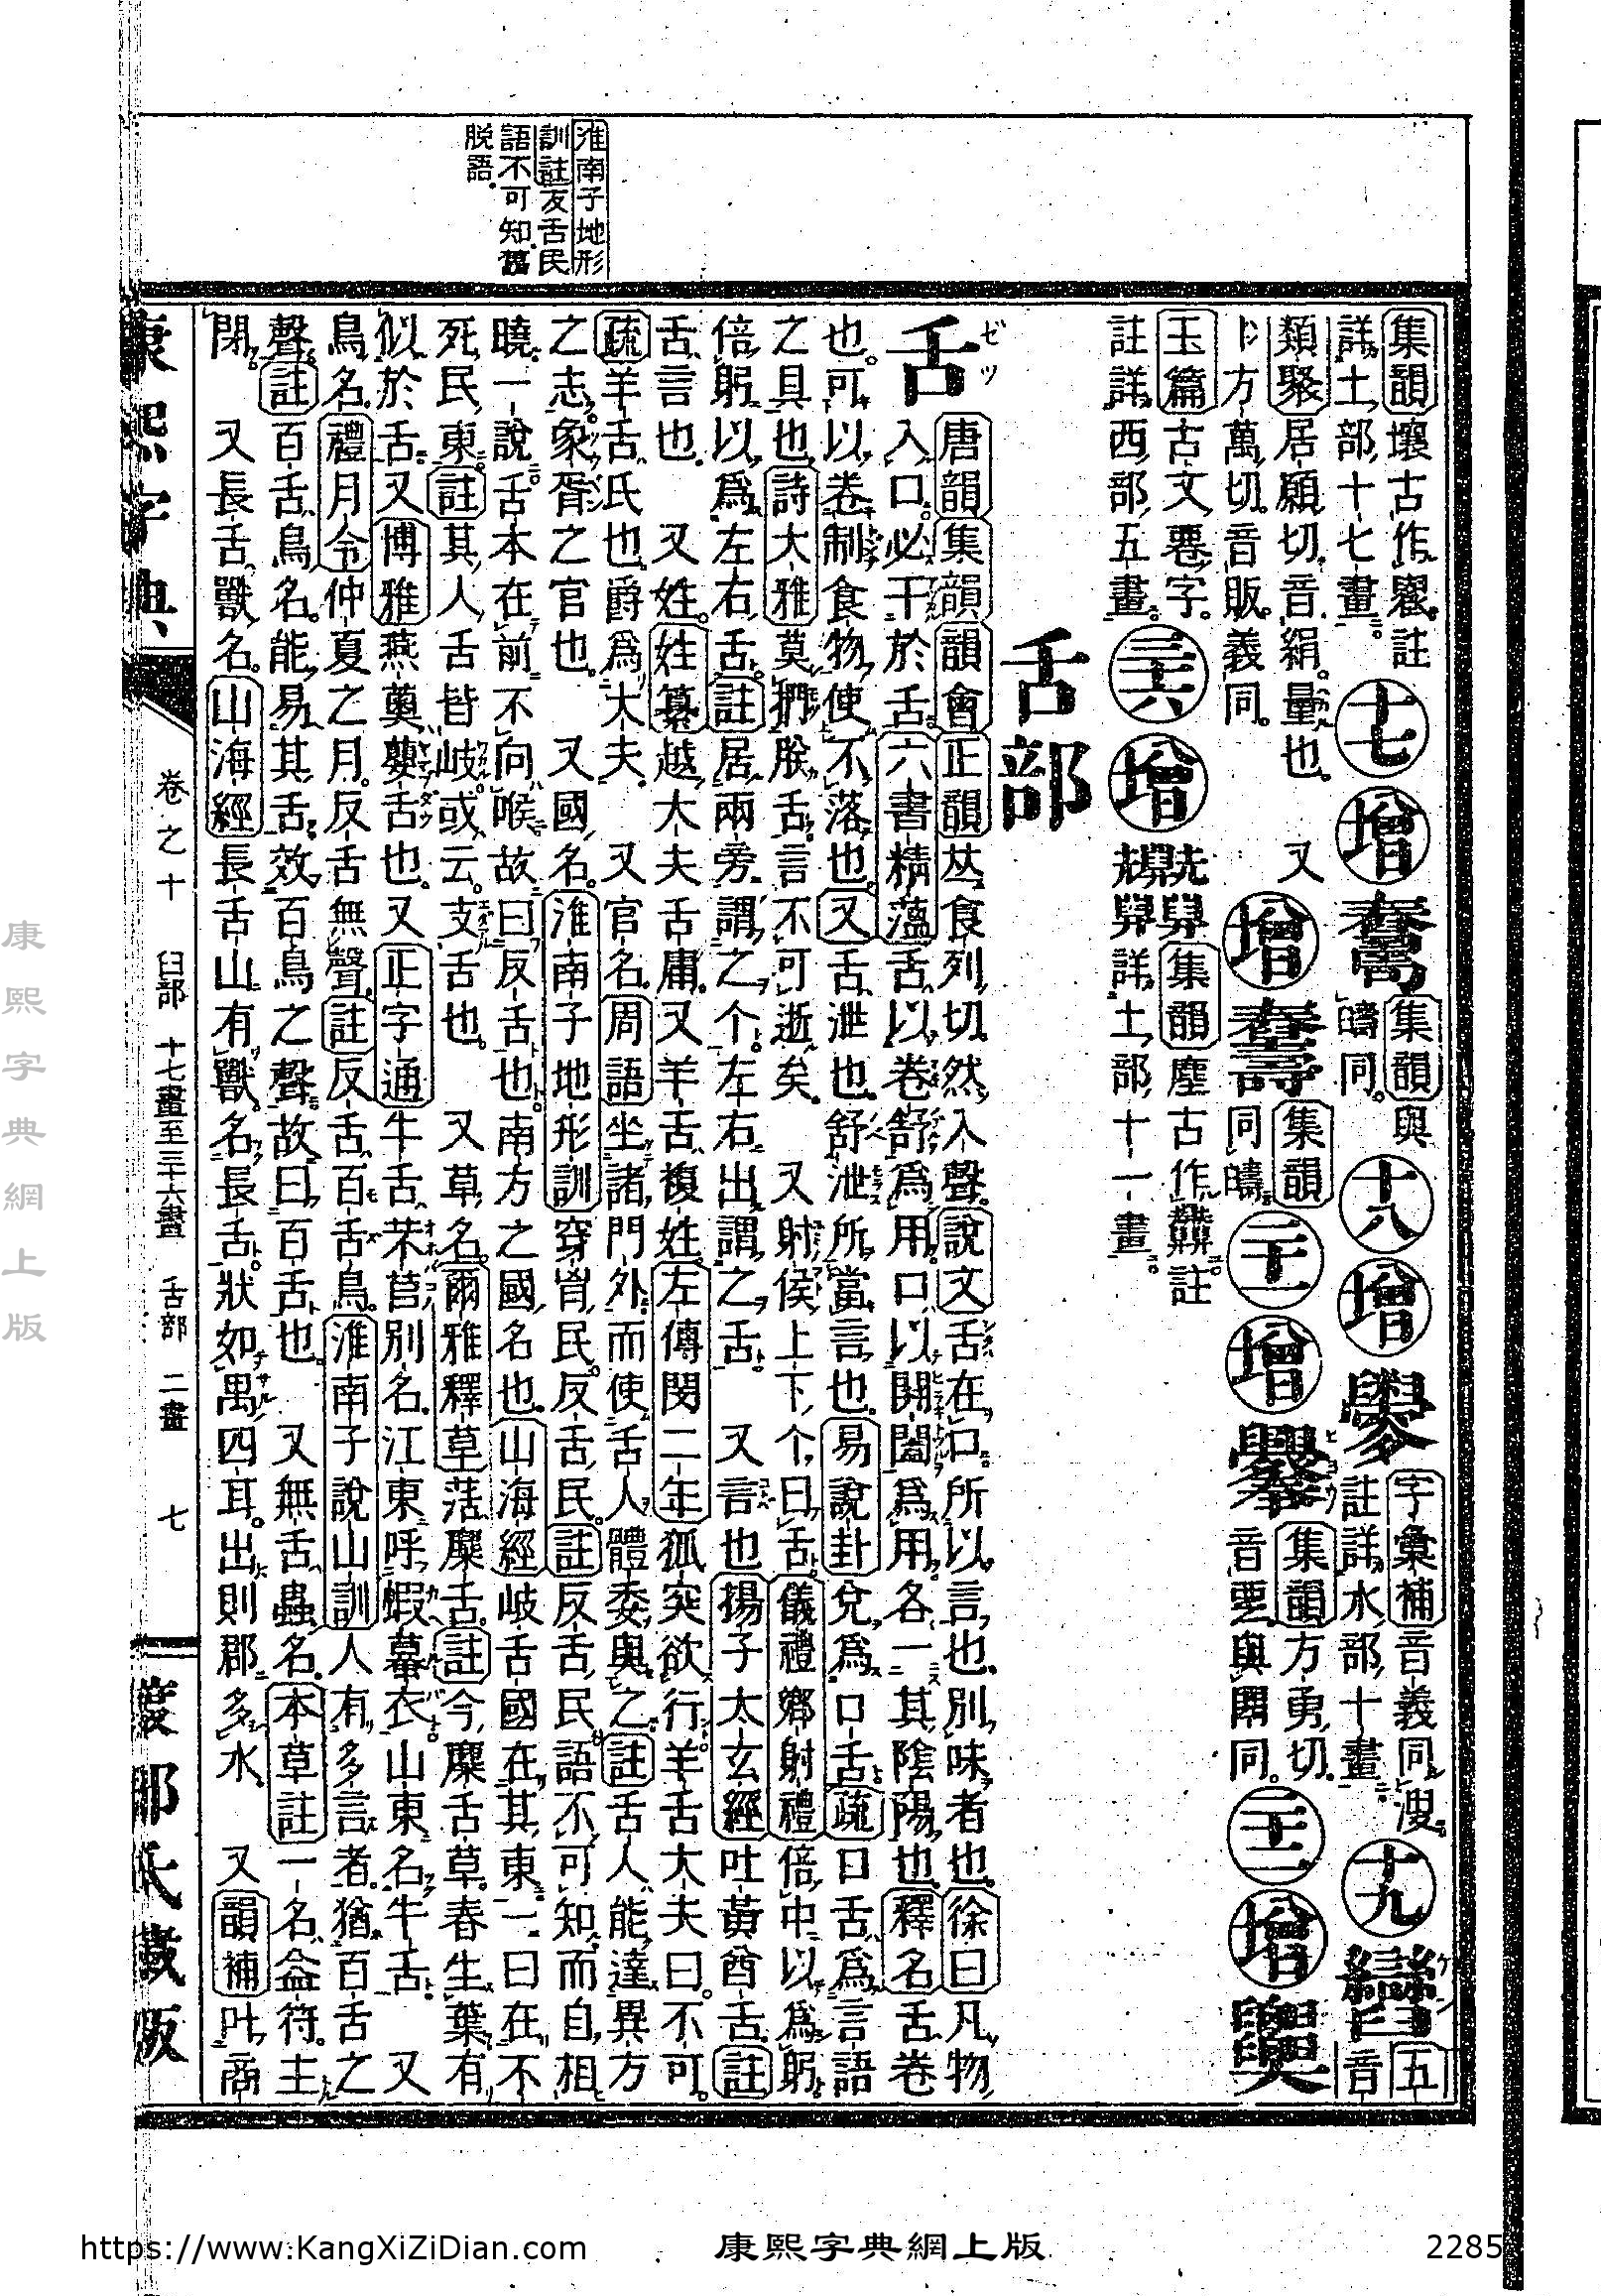 淮南子地形
訓註反舌民
語不可知舊
脱語
集韻壤古作㽮註
詳土部十七畫
十七
增
集韻與
疇同
十八
增
字彙補音義同溲
註詳水部十畫
十九
五
音
類聚居願切音絹量也 又
卜方萬切音販義同
增
集韻
同疇
二十一
增
集韻方勇切
音覂與
同
二十二
增
玉篇古文䙴字
註詳西部五畫
二十六
增
集韻塵古作 註
詳土部十一畫
舌部
舌
唐韻集韻韻會正韻𠀤食列切然入聲說文舌在口所以言也別味者也徐曰凡物
入口必干於舌六書精薀舌以卷舒爲用口以開闔爲用各一其陰陽也釋名舌卷
也可以卷制食物使不落也又舌泄也舒泄所當言也易說卦兌爲口舌疏口舌爲言語
之具也詩大雅莫捫朕舌言不可逝矣 又射侯上下个曰舌儀禮鄉射禮倍中以爲躬
倍躬以爲左右舌註居兩旁謂之个左右出謂之舌 又言也揚子太玄經吐黃酋舌註
舌言也 又姓姓纂越大夫舌庸又羊舌複姓左傳閔二年狐突欲行羊舌大夫曰不可
疏羊舌氏也爵爲大夫 又官名周語坐諸門外而使舌人體委與之註舌人能達異方
之志象胥之官也 又國名淮南子地形訓穿胷民反舌民註反舌民語不可知而自相
曉一說舌本在前不向喉故曰反舌也南方之國名也山海經岐舌國在其東一曰在不
死民東註其人舌皆岐或云支舌也 又草名爾雅釋草萿麋舌註今麋舌草春生葉有
似於舌又博雅燕薁蘡舌也又正字通牛舌芣苢別名江東呼蝦蟇衣山東名牛舌 又
鳥名禮月令仲夏之月反舌無聲註反舌百舌鳥淮南子說山訓人有多言者猶百舌之
聲註百舌鳥名能易其舌效百鳥之聲故曰百舌也 又無舌蟲名本草註一名益符主
閉 又長舌獸名山海經長舌山有獸名長舌狀如禺四耳出則郡多水 又韻補叶商
康熙字典
卷之十
臼部 十七畫至二十六畫 舌部 二畫
七
渡部氏藏版
康熙字典網上版
https://www.KangXiZiDian.com
康熙字典網上版
2285